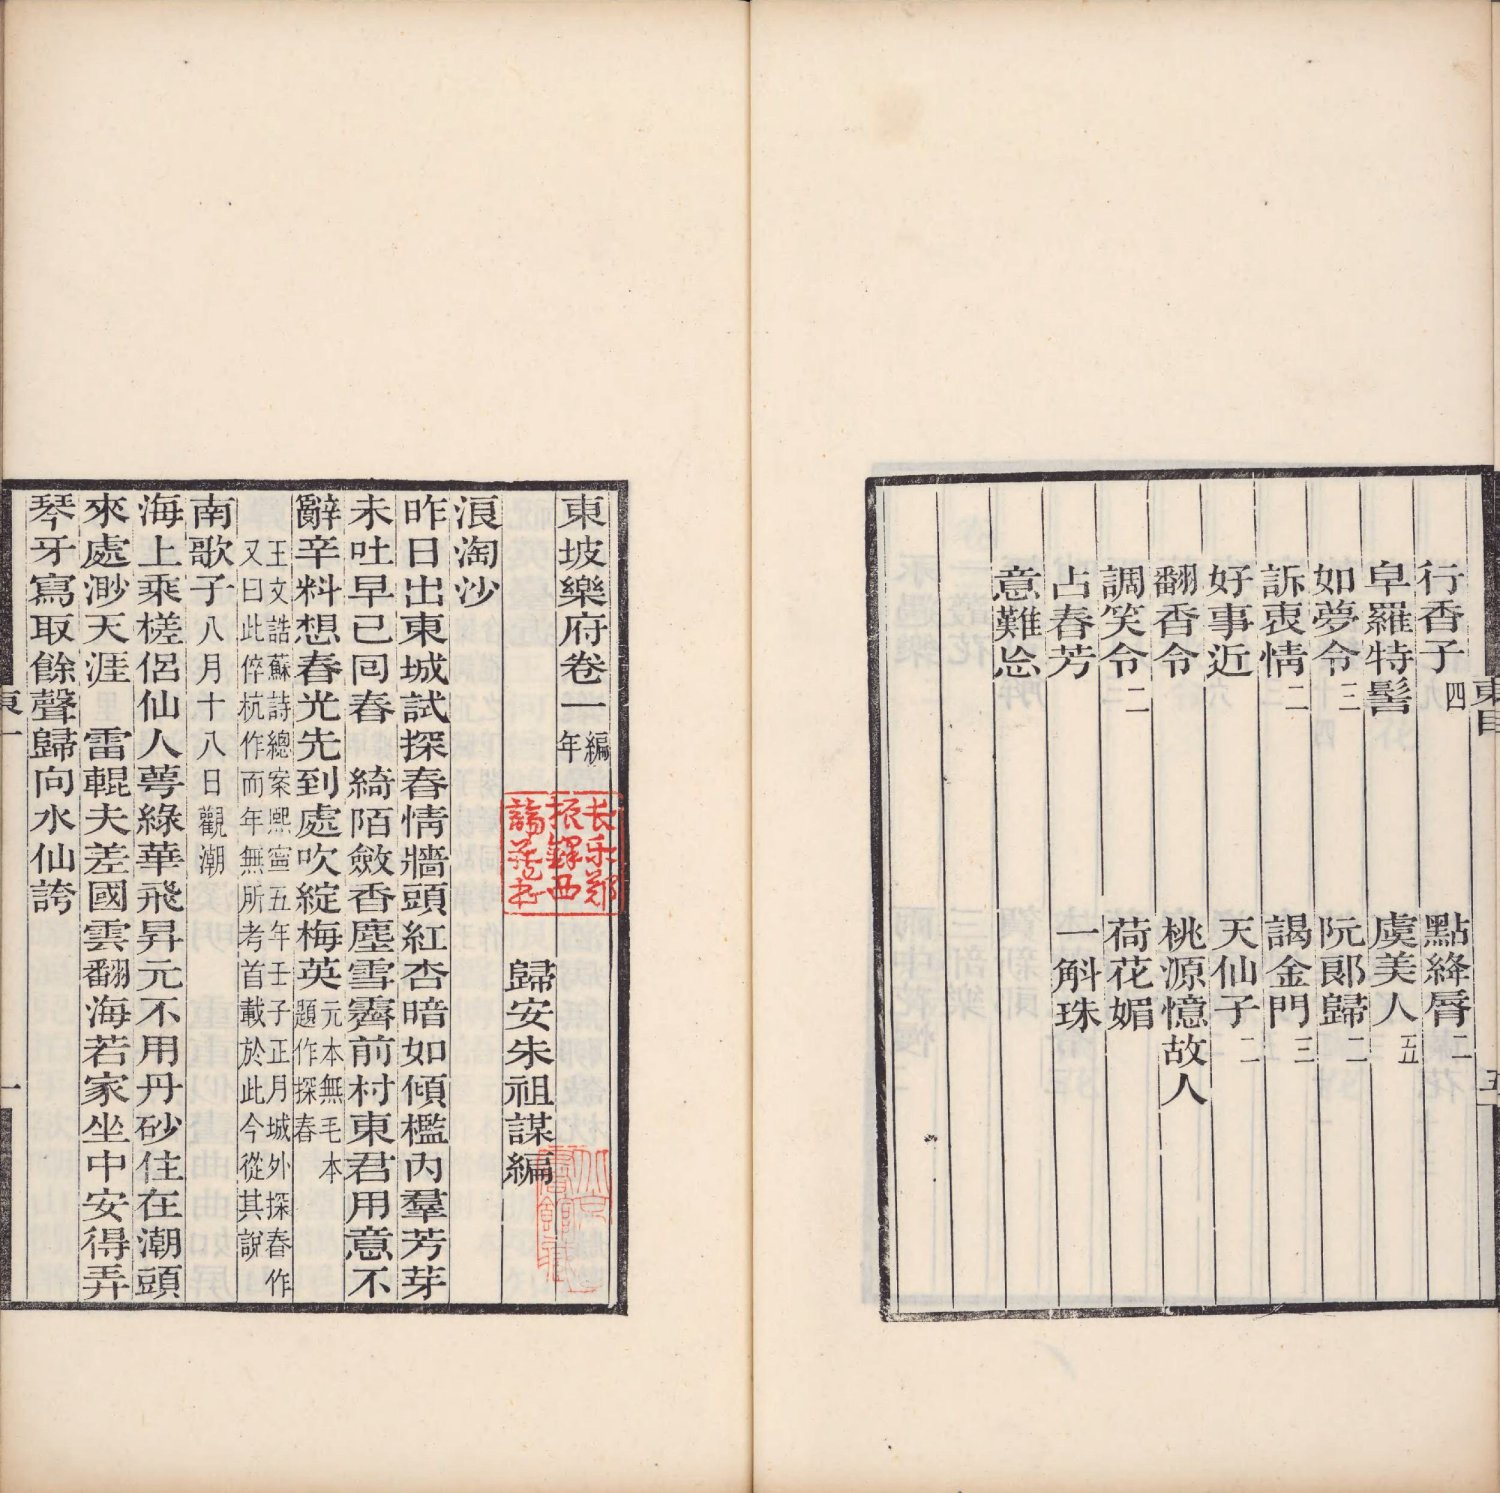 行香子四　點絳脣二
皁羅特髻　虞美人五
如夢令三　阮郞歸二
訴衷情二　謁金門三
好事近　天仙子二
翻香令　桃源憶故人
調笑令二　荷花媚
占春芳　一斛珠
意難忘
東坡樂府卷一編年
歸安朱祖謀編
浪淘沙
昨日出東城試探春情牆頭紅杏暗如傾檻內羣芳芽
未吐早已囘春　綺陌斂香塵雪霽前村東君用意不
辭辛料想春光先到處吹綻梅英元本無毛本題作探春
王文誥蘇詩總案熙寧五年壬子正月城外探春作
又曰此倅杭作而年無所考首載於此今從其說
南歌子八月十八日觀潮
海上乘槎侶仙人萼綠華飛昇元不用丹砂住在潮頭
來處渺天涯　雷輥夫差國雲翻海若家坐中安得弄
琴牙寫取餘聲歸向水仙誇
东一
一
长乐郑
振铎西
谛藏书